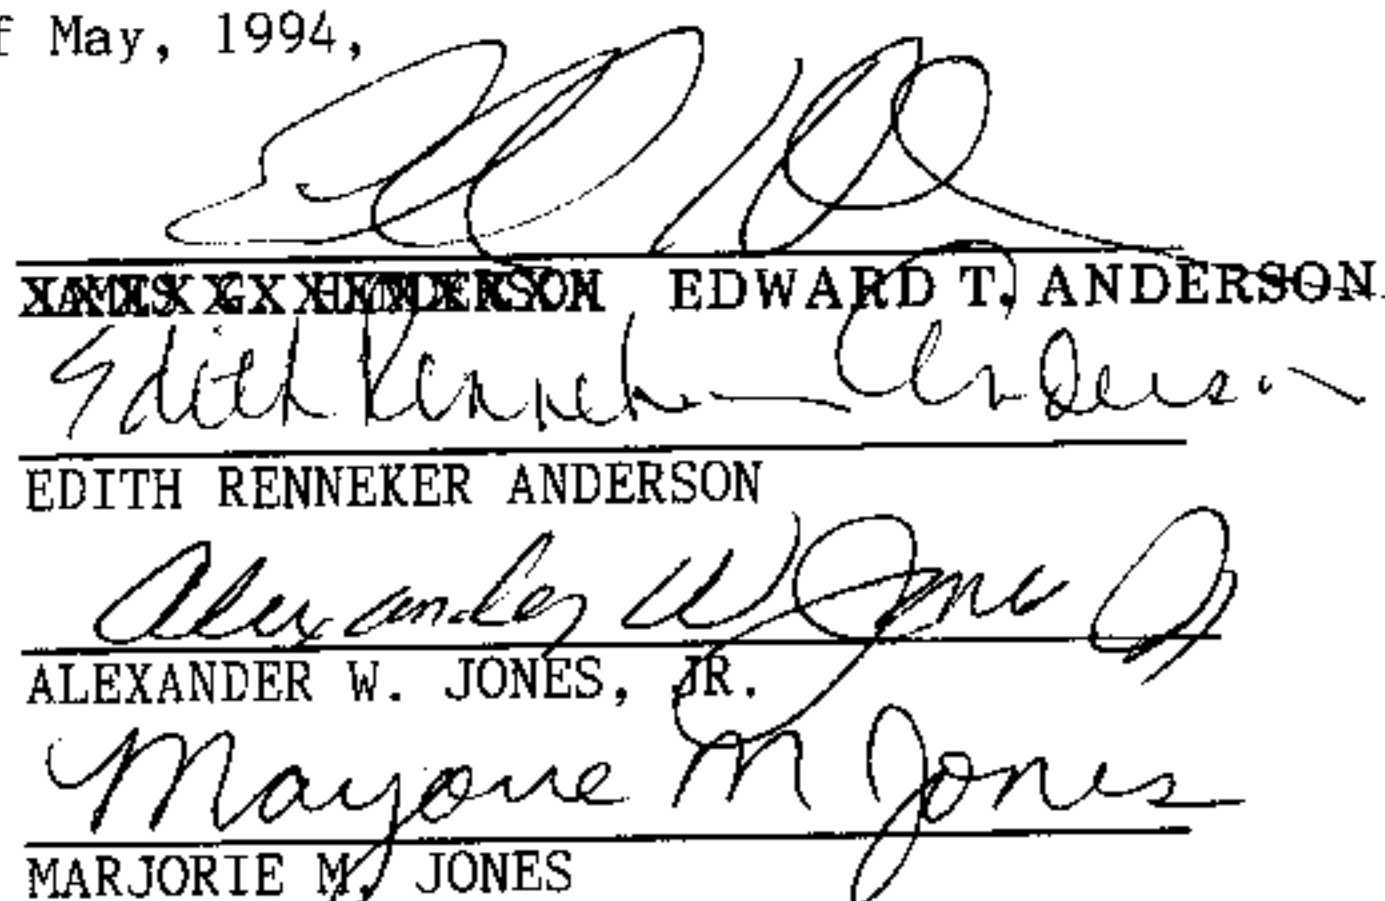 f May, 1994,
EDWARD T. ANDERSON
Edith Renneker Anderson
EDITH RENNEKER ANDERSON
Alexander W Jones Jr
ALEXANDER W. JONES, JR.
Marjorie M Jones
MARJORIE M. JONES